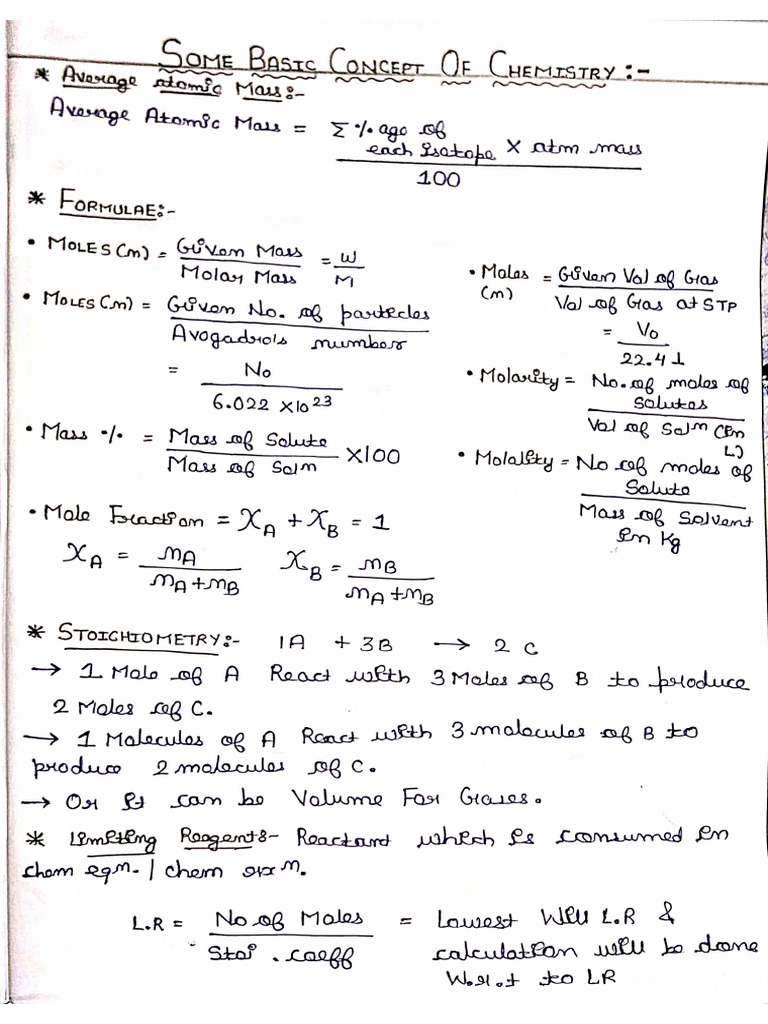 SOME BASIC CONCEPT OF CHEMISTRY :-
* Average atomic Mass:-
Average Atomic Mass = Σ % age of each isotope X atm mass
100
* FORMULAE:-
• MOLES (n) = Given Mass = W
Molar Mass M
• MOLES (n) = Given No. of particles
Avogadro's number
= No
6.022 X10 23
• Mass % = Mass of Solute X100
Mass of Soln
• Mole Fraction = XA + XB = 1
XA = nA XB = nB
nA+nB nA+nB
• Moles = Given Vol of Gas
(n) Vol of Gas at STP
= Vo
22.4 L
• Molarity = No. of moles of
Solutes
Vol of Soln (in
L)
• Molality = No of moles of
Solute
Mass of Solvent
in Kg
* STOICHIOMETRY:- 1A + 3B → 2 C
→ 1 Mole of A React with 3 Moles of B to produce
2 Moles of C.
→ 1 Molecules of A React with 3 molecules of B to
produce 2 molecules of C.
→ Or it can be Volume For Gases.
* Limiting Reagent:- Reactant which is consumed in
chem eqn. / chem rxn.
L.R = No of Moles = Lowest Will L.R &
Stoi . coeff calculation will be done
W.r.t to LR